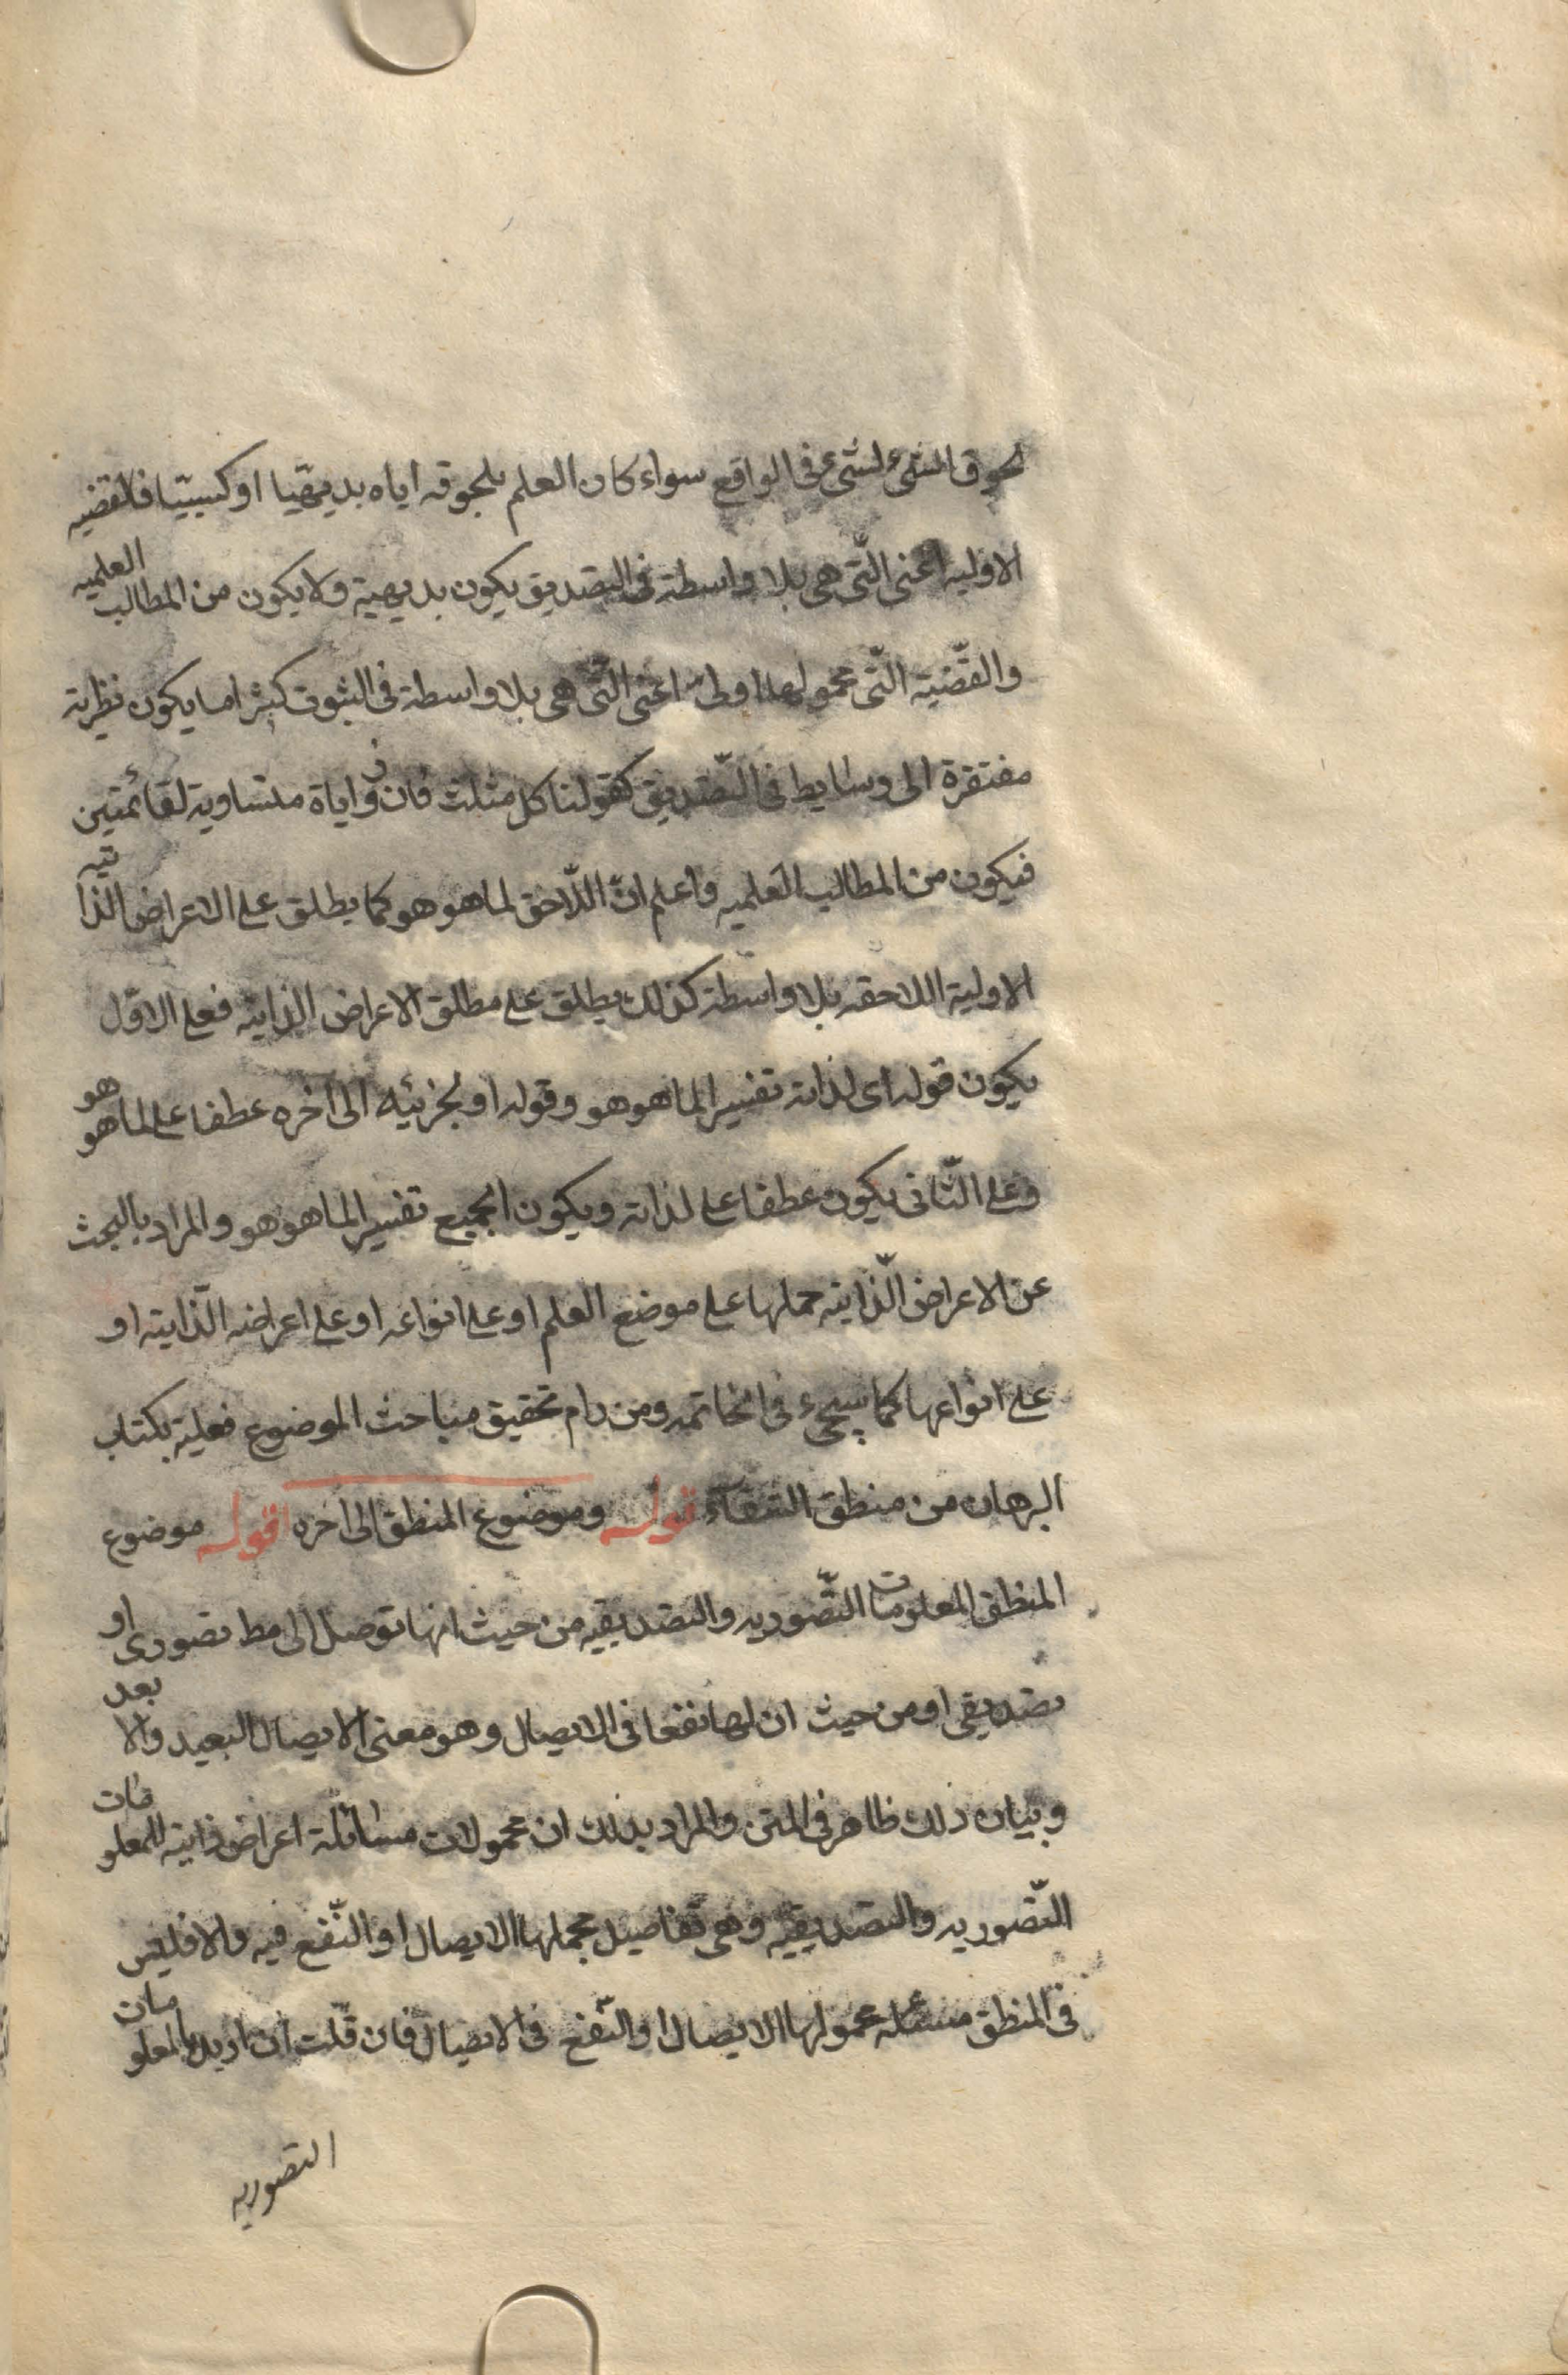 لحوق الشئ لشئ فى الواقع سواء كان العلم بلحوقه اياه بديهيّا او كسبيّا فالقضيه
الاوليه اعنى الّتى هى بلا واسطة فى التصديق يكون بديهية ولا يكون من المطالب العلميه
والقضّية الّتى محمولها اولى اعنى الّتى هى بلا واسطة فى الثبوت كثيرا ما يكون نظرية
مفتقرة الى وسايط فى التّصديق كقولنا كل مثلث فان زواياه متساوية لقائمتين
فيكون من المطالب العلميه واعلم انّ اللّاحق لما هو هو كما يطلق على الاعراض الذاتيه
الاولية اللاحقه بلا واسطة كذلك يطلق على مطلق الاعراض الذاتيه فعلى الاوّل
يكون قوله اى لذاته تفسيرا لما هو هو وقوله او لجزئيه الى اخره عطفا على لما هو هو
وعلى الثّانى يكون عطفا على لذاته ويكون الجميع تفسيرا لما هو هو والمراد بالبحث
عن الاعراض الّذاتيه حملها على موضع العلم او على انواعه او على اعراضه الّذاتيته او
على انواعها كما سيجىء فى الخاتمه ومن رام تحقيق مباحث الموضوع فعليه بكتاب
البرهان من منطق الشفآء قوله وموضوع المنطق الى اخره اقول موضوع
المنطق المعلومات التّصوريه والتصديقيه من حيث انها توصل الى مط تصورى او
تصديقى او من حيث ان لها نفعا فى الايصال وهو معنى الايصال البعيد والا بعد
وبيان ذلك ظاهر فى المتن والمراد بذلك ان محمولات مسائله اعراض ذاتيه للمعلومات
التّصوريه والتصديقيّه وهى تفاصيل مجملها الايصال او النّفع فيه والا فليس
فى المنطق مسئله محمولها الايصال او النّفع فى الايصال فان قلت ان اريد بالمعلومات
التصوريه